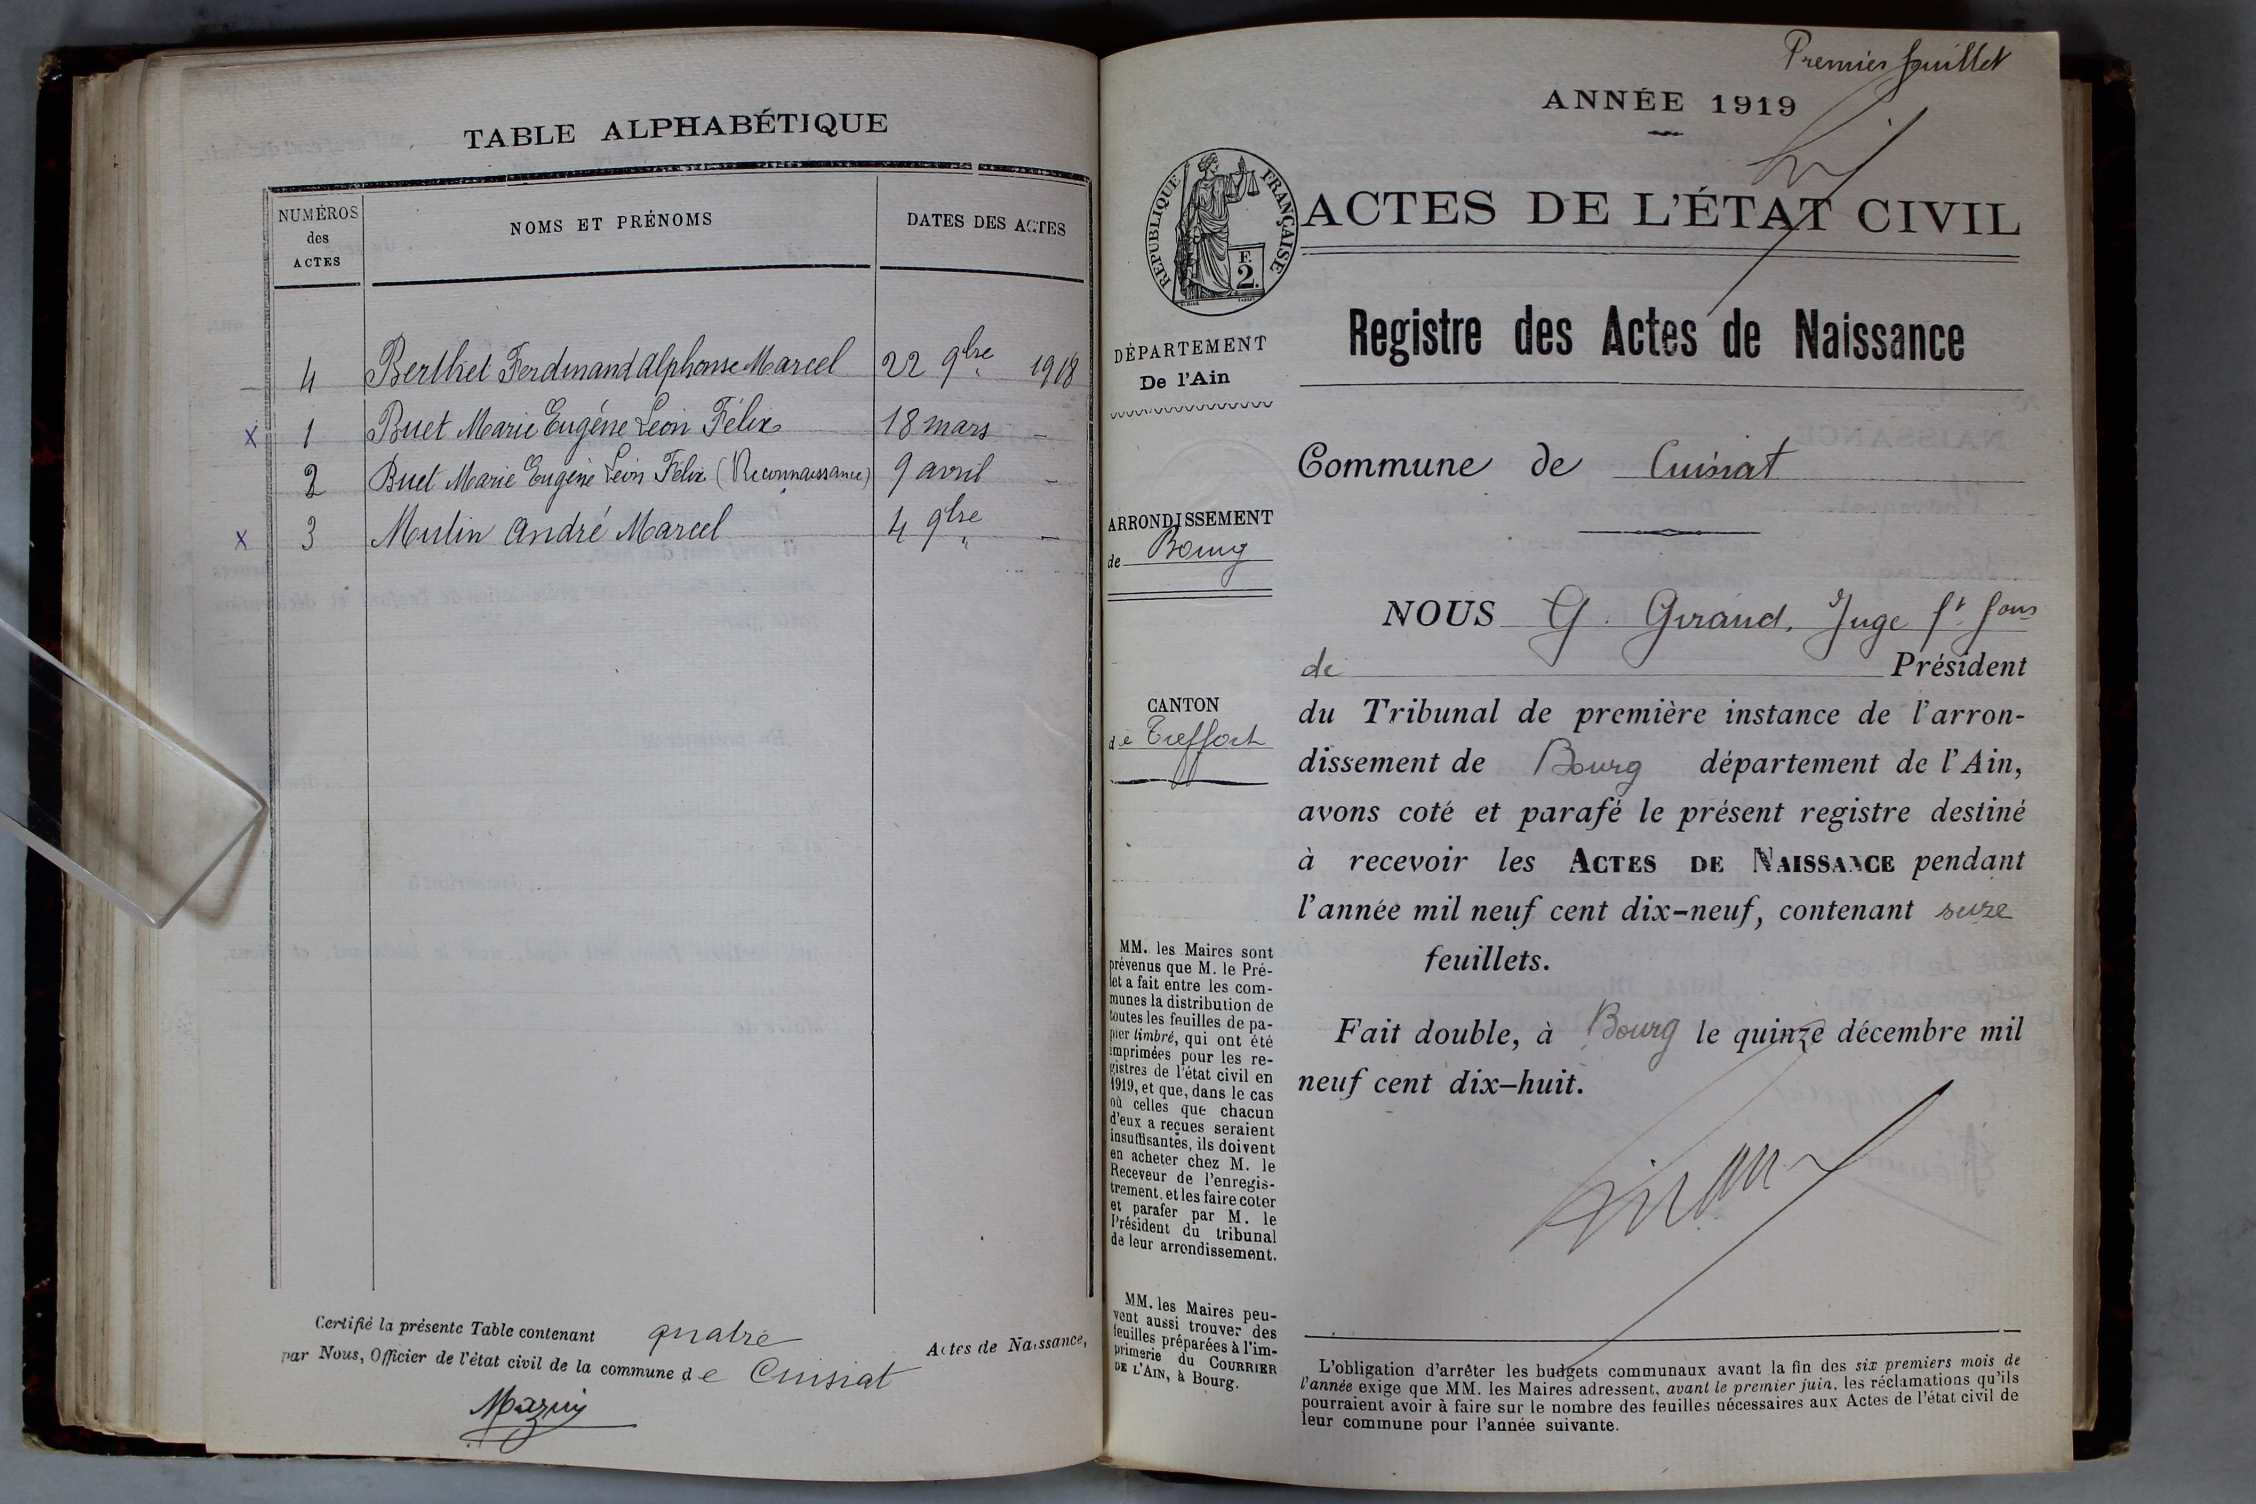 TABLE ALPHABÉTIQUE
NUMÉROS des ACTES
NOMS ET PRÉNOMS
DATES DES ACTES
4 Berthet Ferdinand Alphonse Marcel 22 9bre 1918
x 1 Buet Marie Eugène Léon Félix 18 mars -
2 Buet Marie Eugène Léon Félix (Reconnaissance) 9 avril -
x 3 Moulin André Marcel 4 9bre " -
Certifié la présente Table contenant quatre Actes de Naissance,
par Nous, Officier de l'état civil de la commune de Cuisiat
Mazuy
Premier feuillet
ANNÉE 1919
RÉPUBLIQUE FRANÇAISE
F. 2.
ACTES DE L'ÉTAT CIVIL
Registre des Actes de Naissance
DÉPARTEMENT
De l'Ain
Commune de Cuisiat
ARRONDISSEMENT
de Bourg
CANTON
de Treffort
MM. les Maires sont
prévenus que M. le Pré-
fet a fait entre les com-
munes la distribution de
toutes les feuilles de pa-
pier timbré, qui ont été
imprimées pour les re-
gistres de l'état civil en
1919, et que, dans le cas
où celles que chacun
d'eux a reçues seraient
insuffisantes, ils doivent
en acheter chez M. le
Receveur de l'enregis-
trement, et les faire coter
et parafer par M. le
Président du tribunal
de leur arrondissement.
MM. les Maires peu-
vent aussi trouver des
feuilles préparées à l'im-
primerie du COURRIER
DE L'AIN, à Bourg.
NOUS G. Giraud, Juge ft fons
de Président
du Tribunal de première instance de l'arron-
dissement de Bourg département de l'Ain,
avons coté et parafé le présent registre destiné
à recevoir les ACTES DE NAISSANCE pendant
l'année mil neuf cent dix-neuf, contenant seize
feuillets.
Fait double, à Bourg le quinze décembre mil
neuf cent dix-huit.
L'obligation d'arrêter les budgets communaux avant la fin des six premiers mois de
l'année exige que MM. les Maires adressent, avant le premier juin, les réclamations qu'ils
pourraient avoir à faire sur le nombre des feuilles nécessaires aux Actes de l'état civil de
leur commune pour l'année suivante.